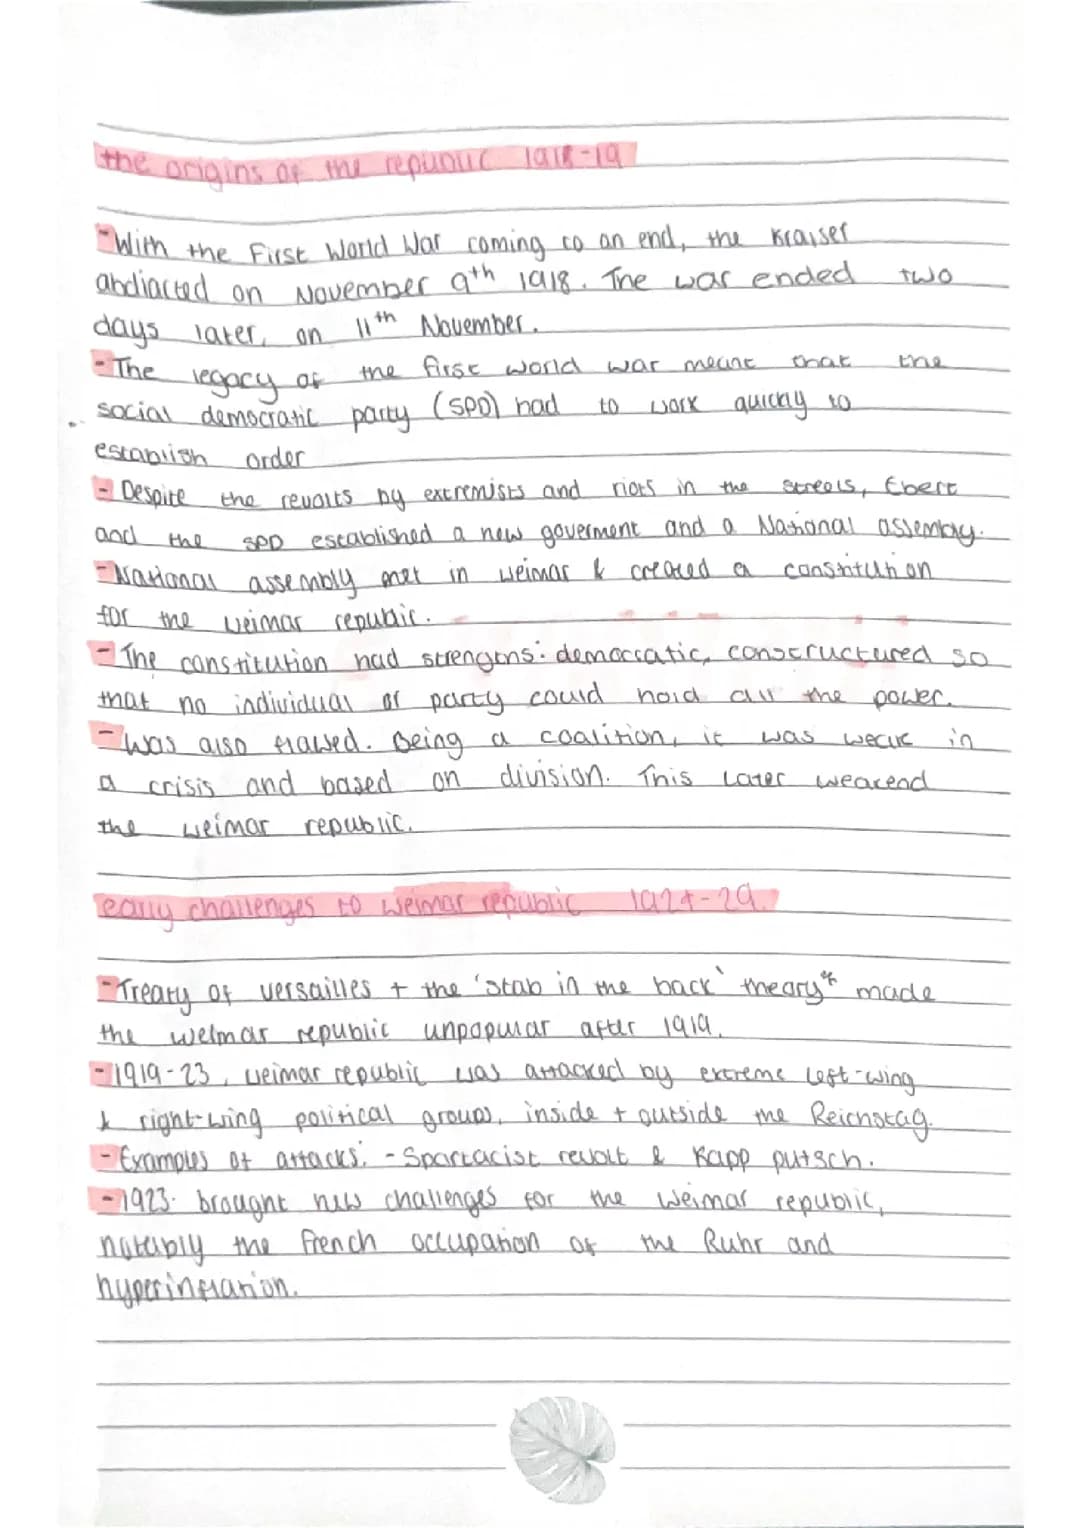 the origins of the republic 1918-19
-With the First World War coming to an end, the Kraiser
abdiacted on November 9th 1918. The war ended two
days later, on 11th November.
-The legacy of the first world war meant that the
social democratic party (SPD) had to work quickly to
establish order
- Despite the revolts by extremists and riots in the streets, Ebert
and the SPD established a new goverment and a National assembly.
-National assembly met in weimar & created a constitution
for the weimar republic.
-The constitution had strengths: democratic, constructured so
that no individual or party could hold all the power.
-Was also flawed. Being a coalition, it was weak in
a crisis and based on division. This later weakend
the weimar republic.
early challenges to weimar republic 1924-29.
-Treaty of versailles + the 'stab in the back' theory* made
the weimar republic unpopular after 1919.
-1919-23, weimar republic was attacked by extreme left-wing
& right-wing political groups, inside + outside the Reichstag.
-Examples of attacks: - Spartacist revolt & Kapp putsch.
-1923- brought new challenges for the weimar republic,
notably the french occupation of the Ruhr and
hyperinflation.